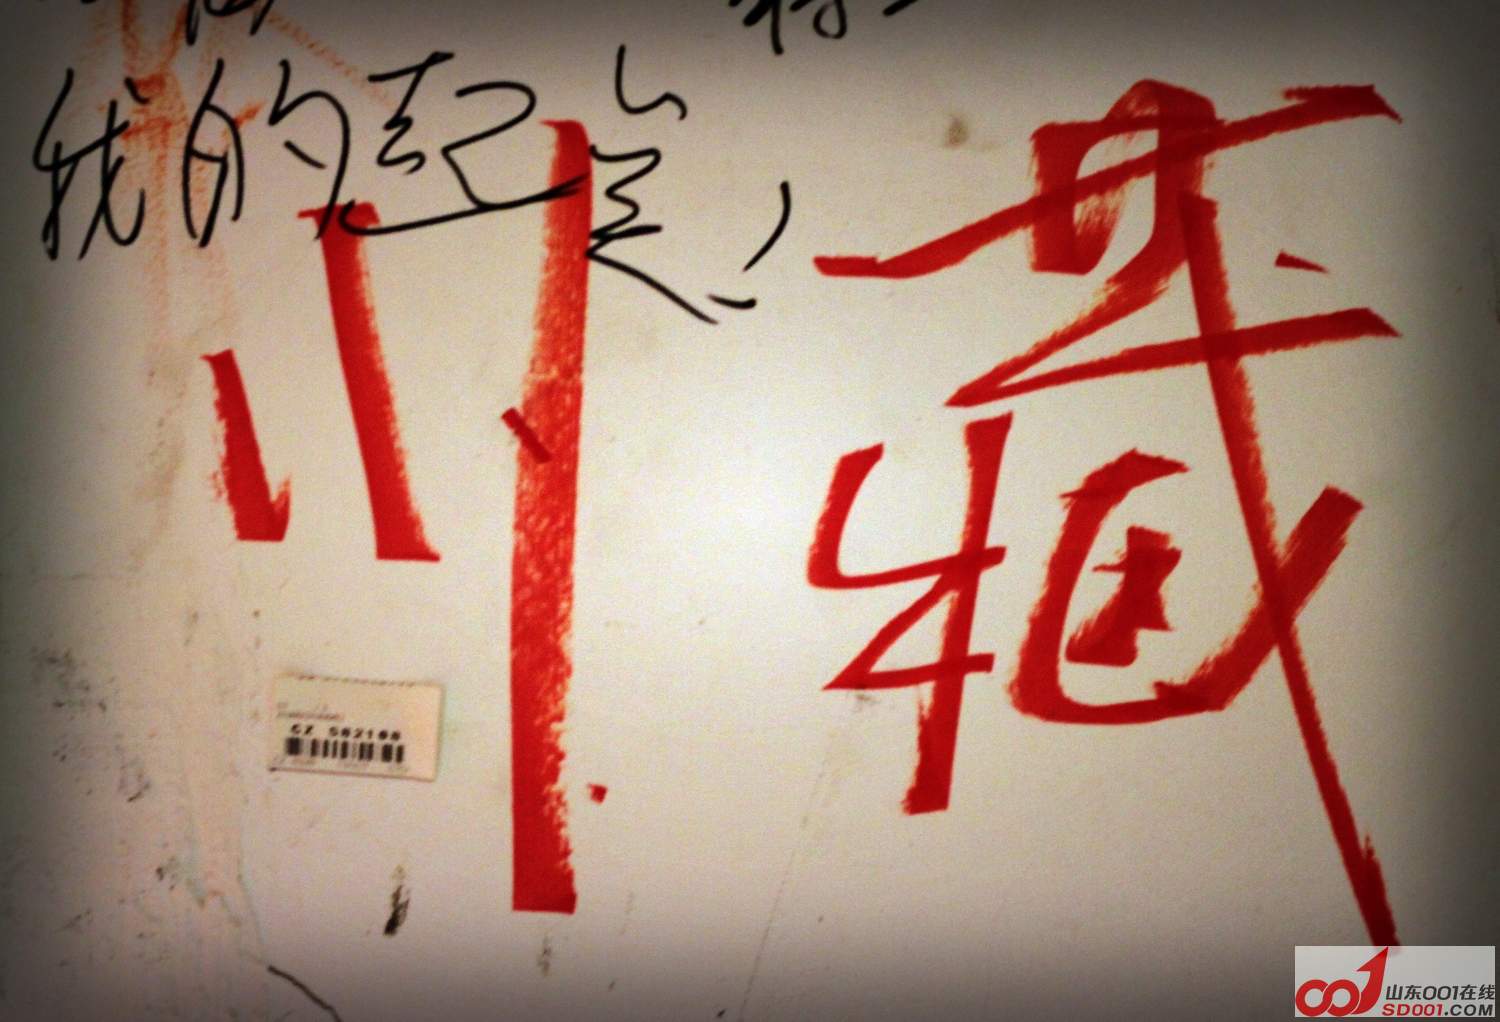 我的起点,
川藏
CZ 502108
山东001在线
SD001.COM